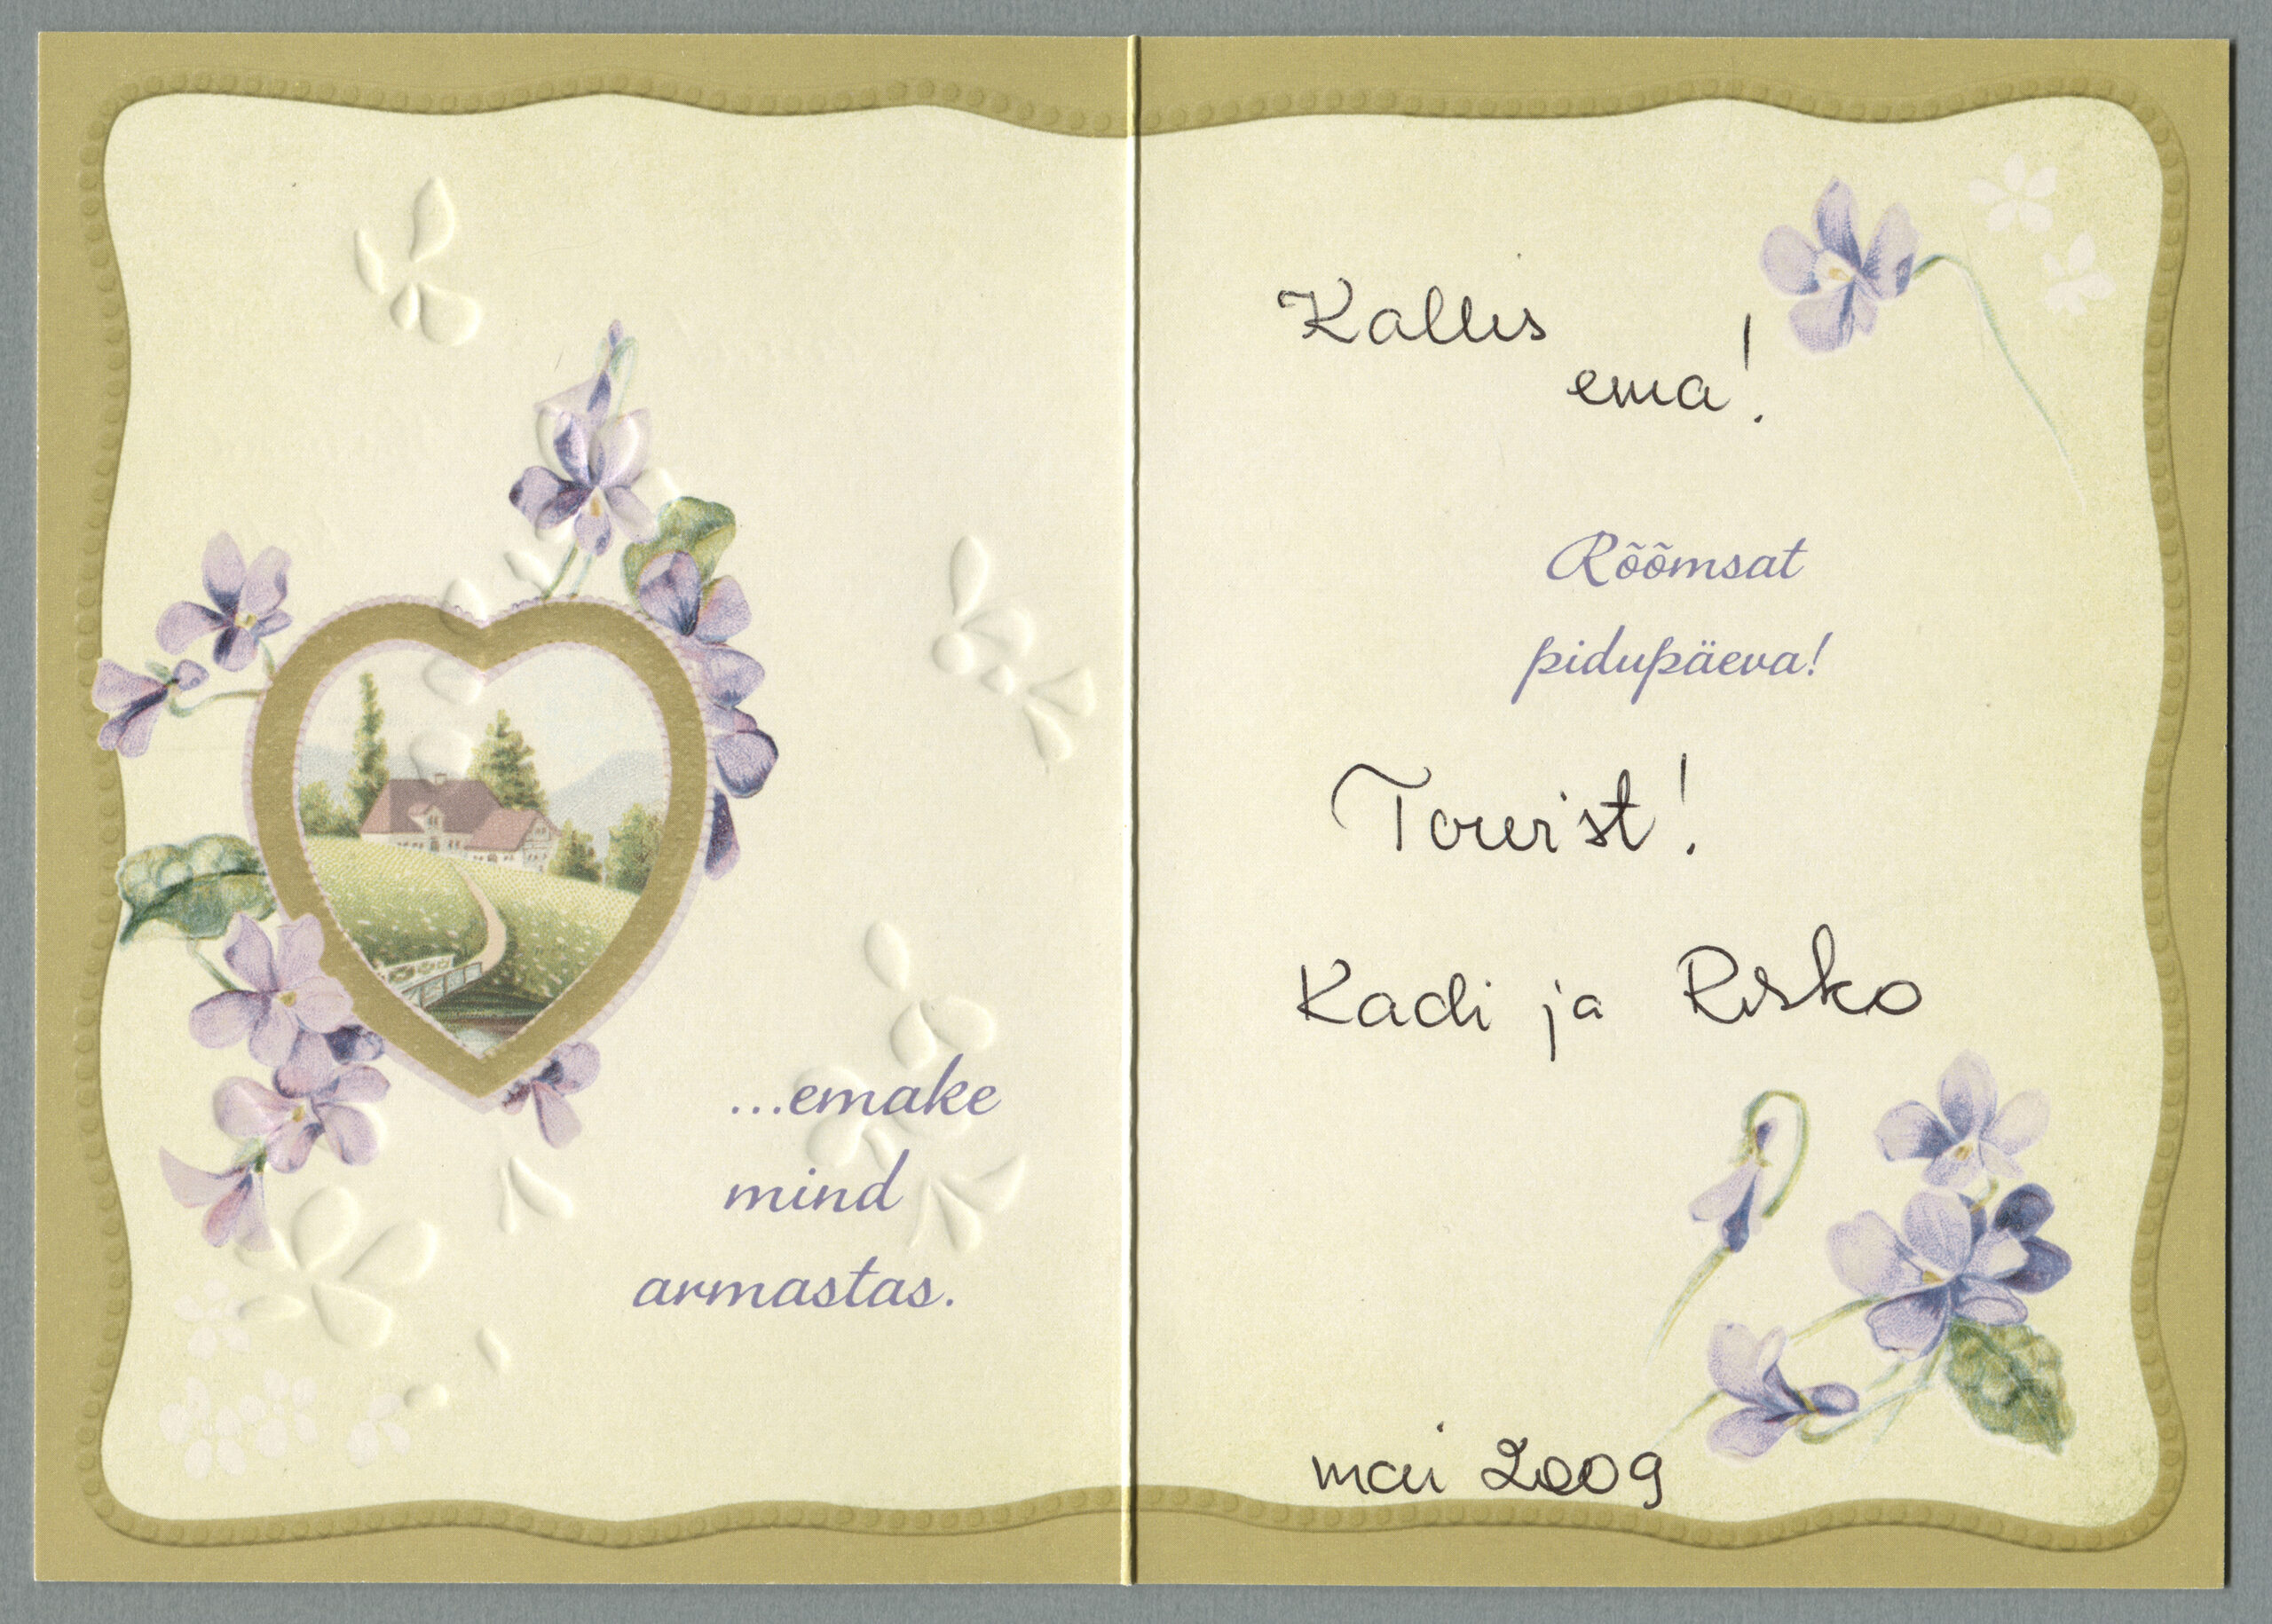 ...emake
mind
armastas.
Kallis
ema!
Rõõmsat
pidupäeva!
Tervist!
Kadi ja Risko
mai 2009